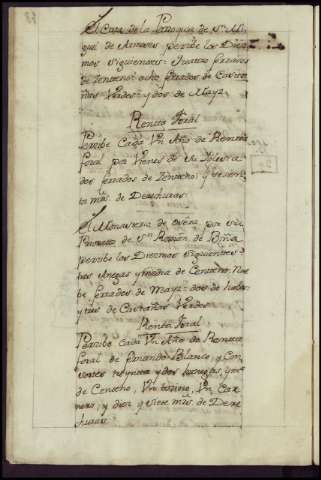 El Cura de la Parroquia de Sn. Mi-
guel de Armeses percibe los Diez-
mos siguientes: quatro ferrados
de Zenteno: ocho ferrados de Casta-
ñas Verdes: y dos de Mayz.
Renta Foral
Percibe Cada Vn Año de Renta
foral por vienes de su Yglesia
dos ferrados de Zenteno; y sesen-
ta mrs. de Derechuras.
El Monasterio de Osera por su
Priorato de Sn
percibe los Diezmos siguientes
tres Anegas y media de Centeno Nue-
be ferrados de Mayz: dos de habas
y tres de Castañas Verdes
Renta Foral
Percibe Cada Vn Año de Renta
foral de Fernando Blanco, y Con-
sortes treynta y dos anegas
de Centeno, Vn tozino, Vn Car-
nero, y diez y siete mrs. de Dere-
churas.